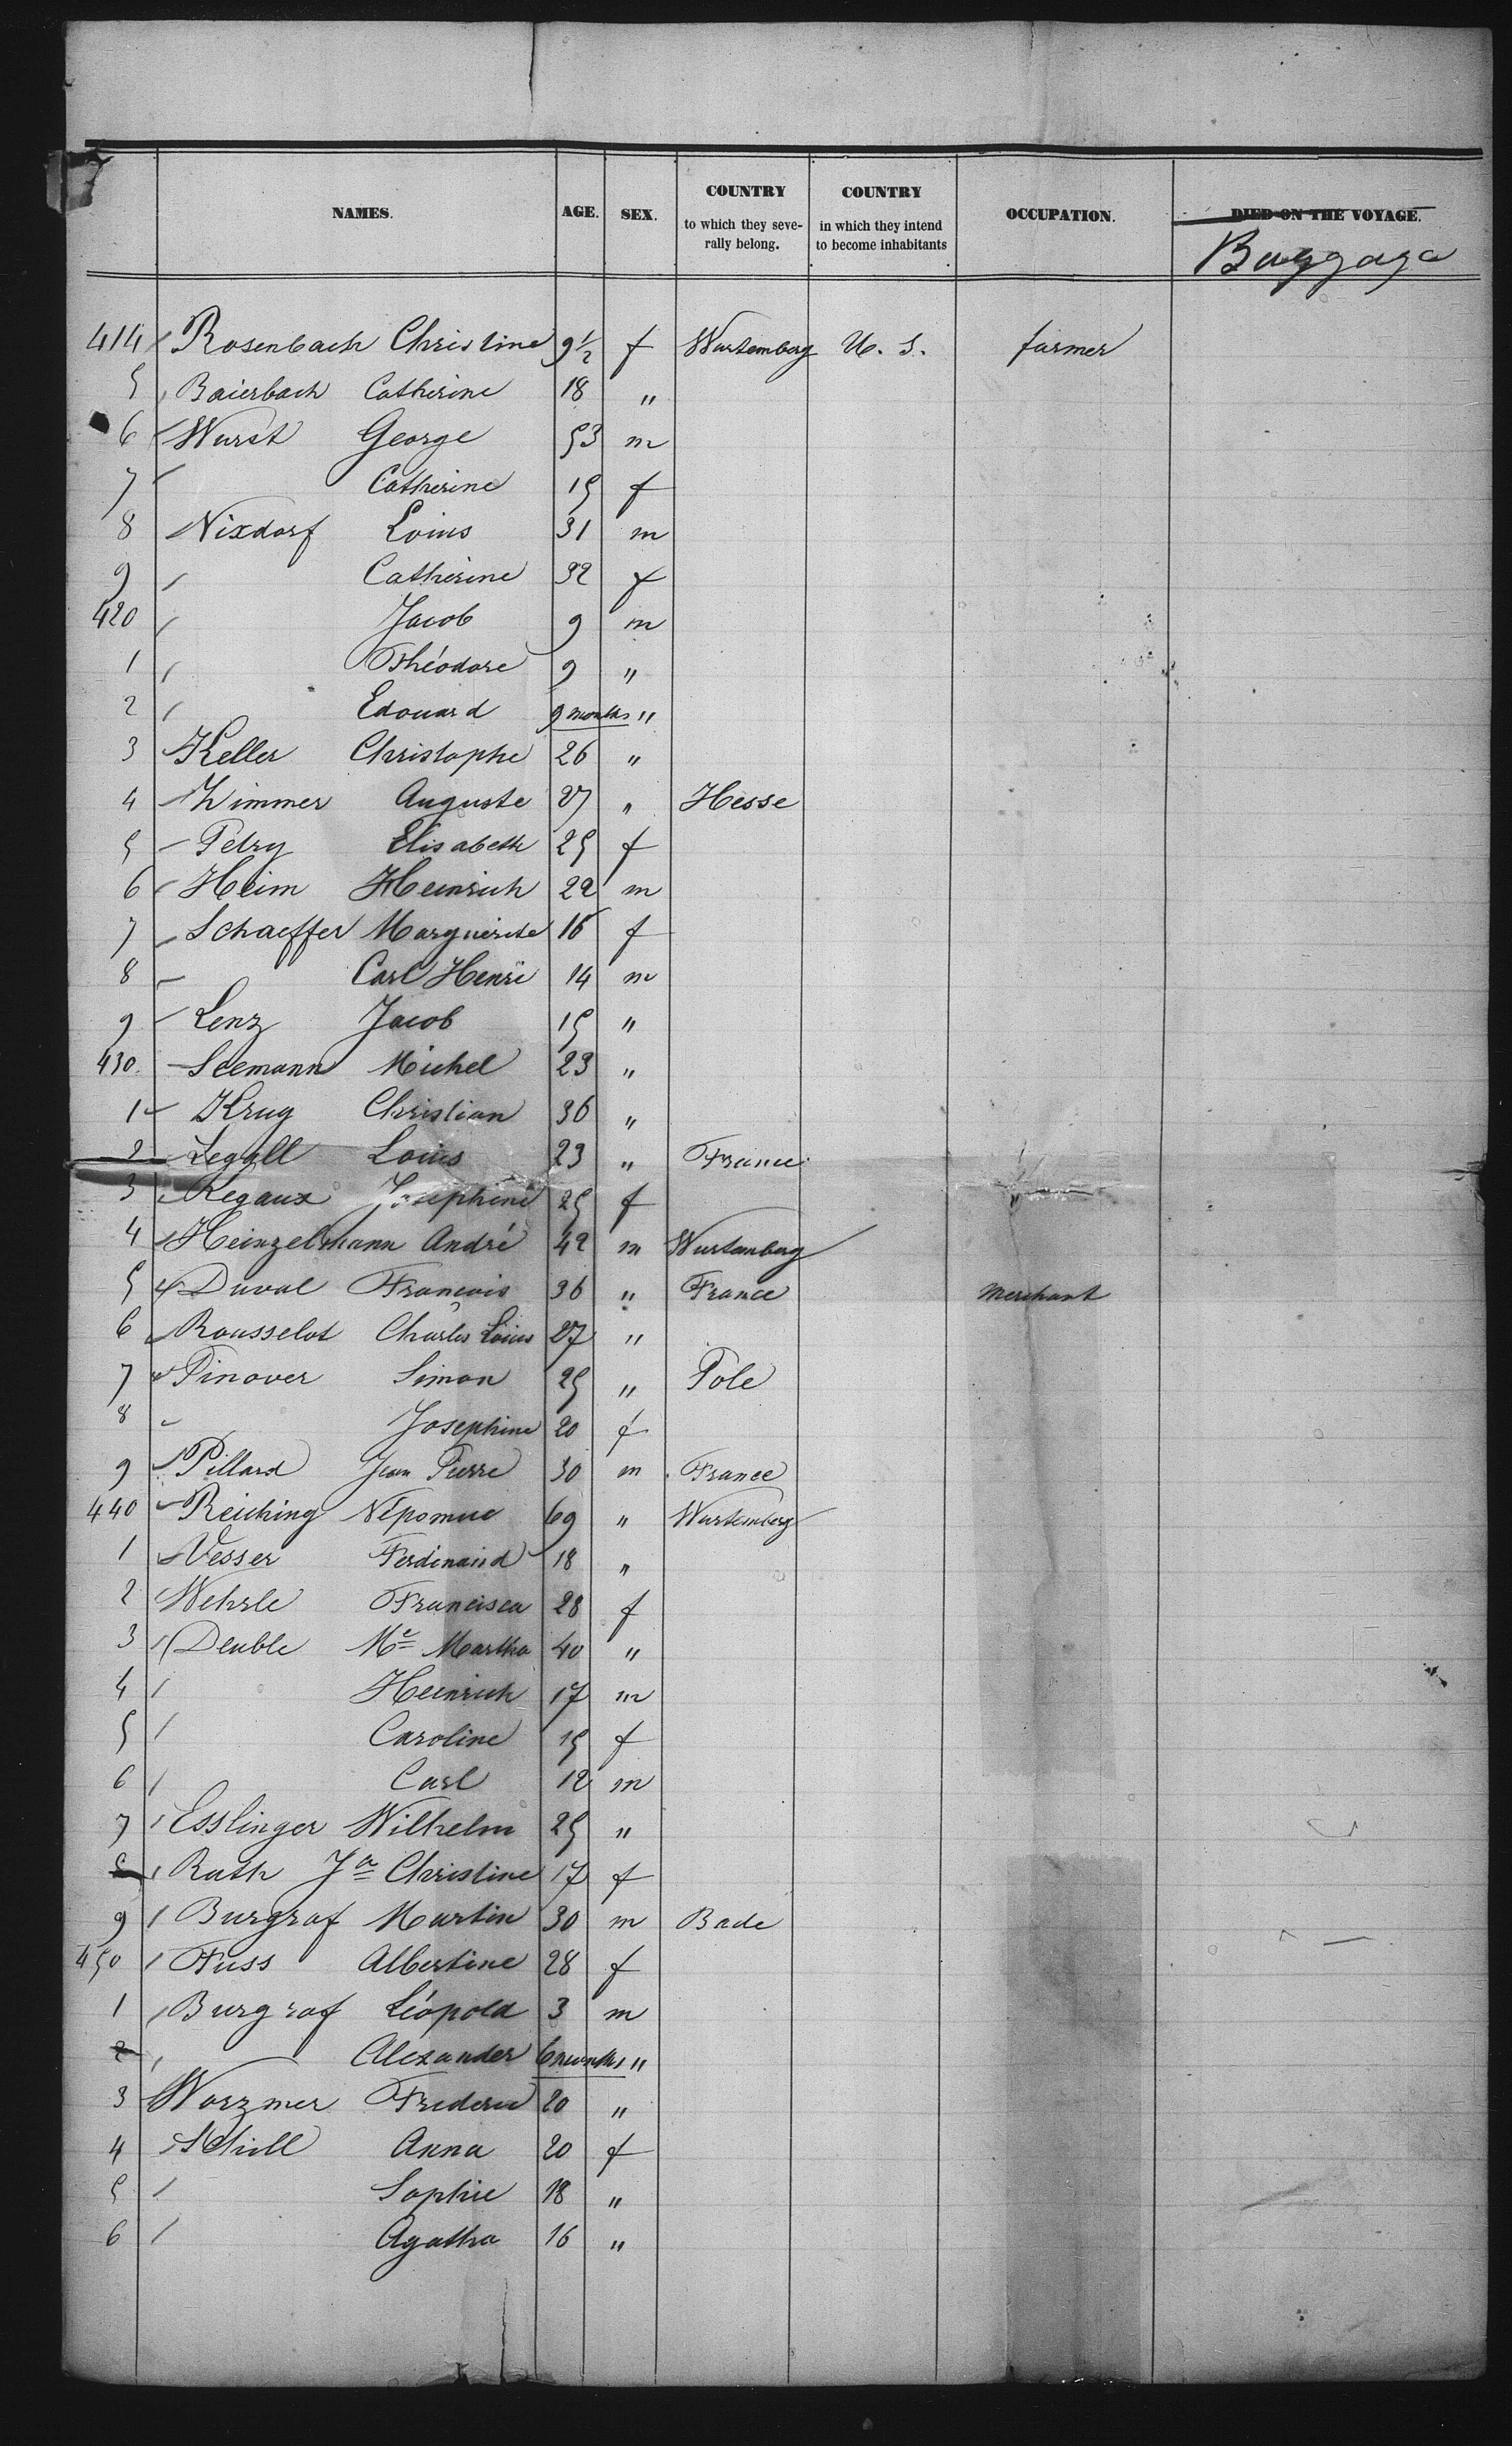 NAMES. AGE. SEX. COUNTRY to which they severally belong. COUNTRY in which they intend to become inhabitants OCCUPATION. DIED ON THE VOYAGE.
Baggage
414 Rosenbach Christine 9 1/2 f Wurtemberg U. S. farmer
5 Baierbach Catherine 18 "
6 Wurst George 53 m
7 Catherine 15 f
8 Nixdorf Loius 31 m
9 Catherine 32 f
420 Jacob 9 m
1 Théodore 9 "
2 Edouard 9 months "
3 Keller Christophe 26 "
4 Zimmer Auguste 27 " Hesse
5 Petry Elisabeth 25 f
6 Heim Heinrich 22 m
7 Schaeffer Marguerite 16 f
8 Carl Henri 14 m
9 Lenz Jacob 15 "
430 Seemann Michel 23 "
1 Krug Christian 36 "
2 Legall Loius 23 " France
3 Regaux Josephine 25 f
4 Heinzelmann André 42 m Wurtemberg
5 Duval François 36 " France Merchant
6 Rousselot Charles Loius 27 "
7 Pinover Simon 25 " Pole
8 Josephine 20 f
9 Pillard Jean Pierre 30 m France
440 Reiching Népomuc 69 " Wurtemberg
1 Vesser Ferdinand 18 "
2 Wehrle Francisca 28 f
3 Deuble Me Martha 40 "
4 Heinrich 17 m
5 Caroline 15 f
6 Carl 12 m
7 Esslinger Wilhelm 25 "
8 Rath Ja Christine 17 f
9 Burgraf Martin 30 m Bade
450 Fuss Albertine 28 f
1 Burgraf Léopold 3 m
2 Alexander 6 months "
3 Worzmer Frederic 20 "
4 Schill Anna 20 f
5 Sophie 18 "
6 Agatha 16 "